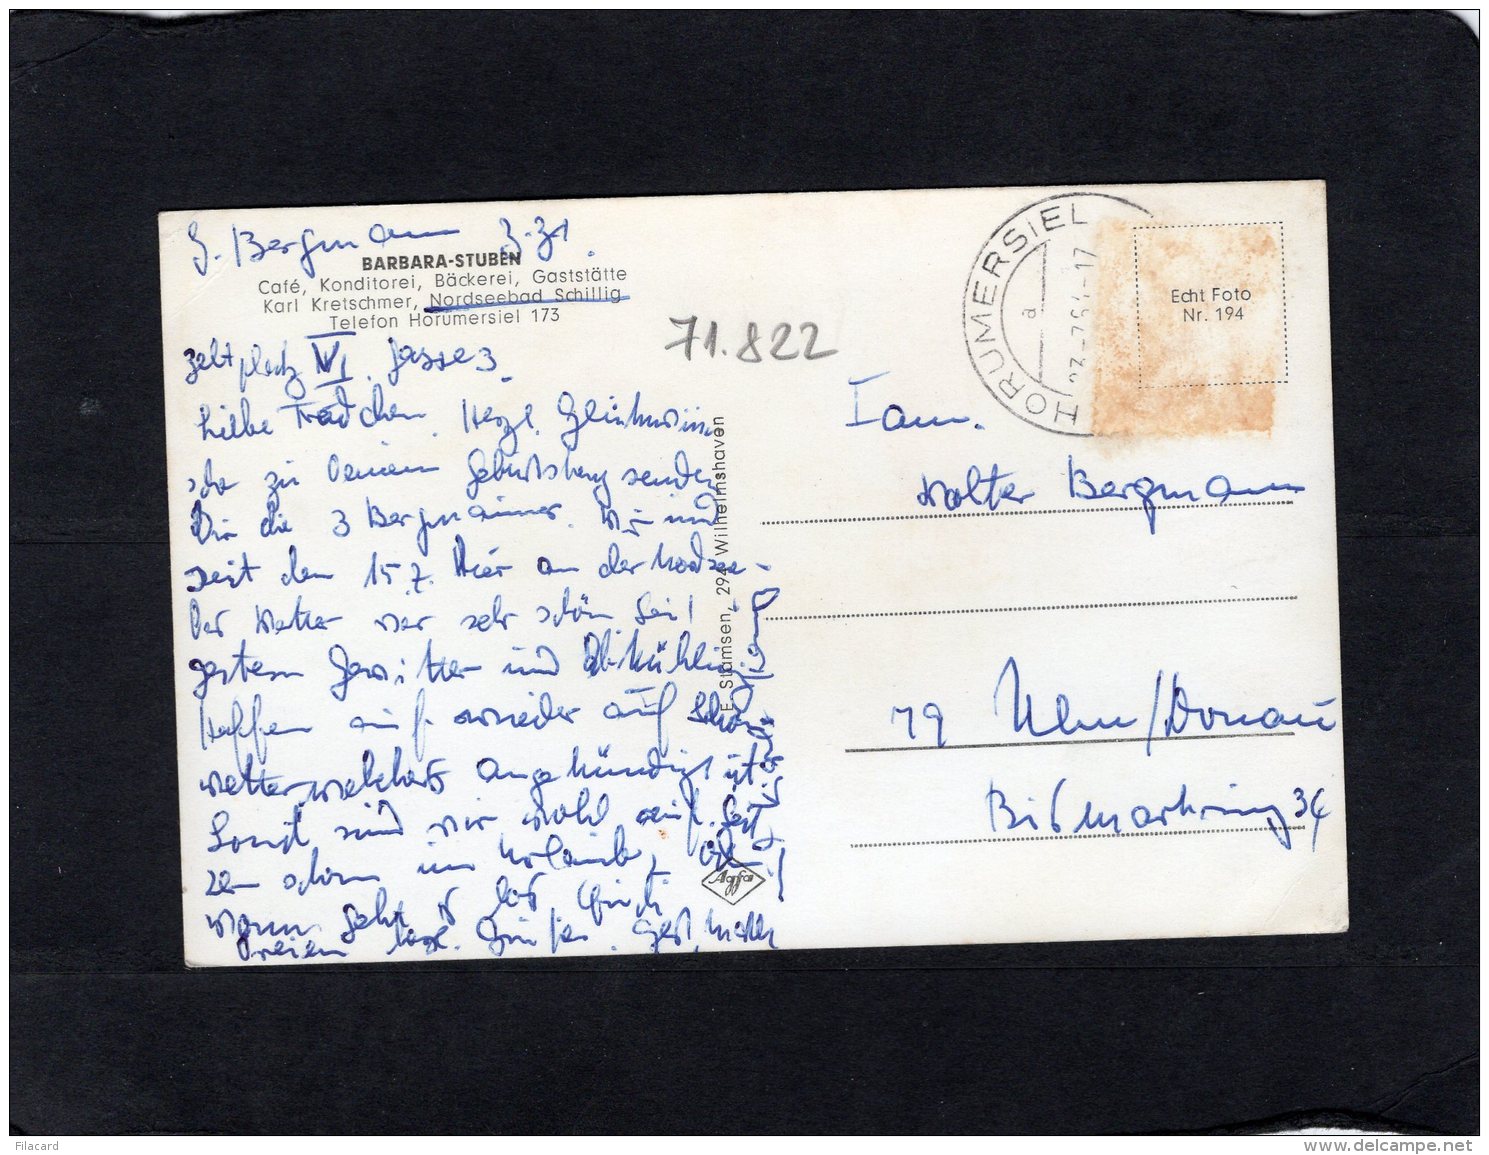 G. Bergmann z.Zt.
BARBARA-STUBEN
Café, Konditorei, Bäckerei, Gaststätte
Karl Kretschmer, Nordseebad Schillig
Telefon Horumersiel 173
71.822
Zeltplatz VI. Gasse 3
Liebe Traudchen. Herzl. Glückwün
sche zu Deinem Geburtstag senden
Dir die 3 Bergmänner. Wir sind
seit dem 15.7. hier an der Nordsee.
Das Wetter war sehr schön. Seit
gestern Gewitter und Abkühlung
Hoffen auf wieder auf schön
wetter welches angekündigt ist
Sonst sind wir wohl auf. Seit
schon im Urlaub,
wann geht es los
Dreien herzl. Grüße. Gert,
E. Stamsen, 294 Wilhelmshaven
Agfa
HORUMERSIEL
a
-17
Echt Foto
Nr. 194
Fam.
Walter Bergmann
79 Ulm/Donau
Bismarckring 34
Filacard
www.delcampe.net